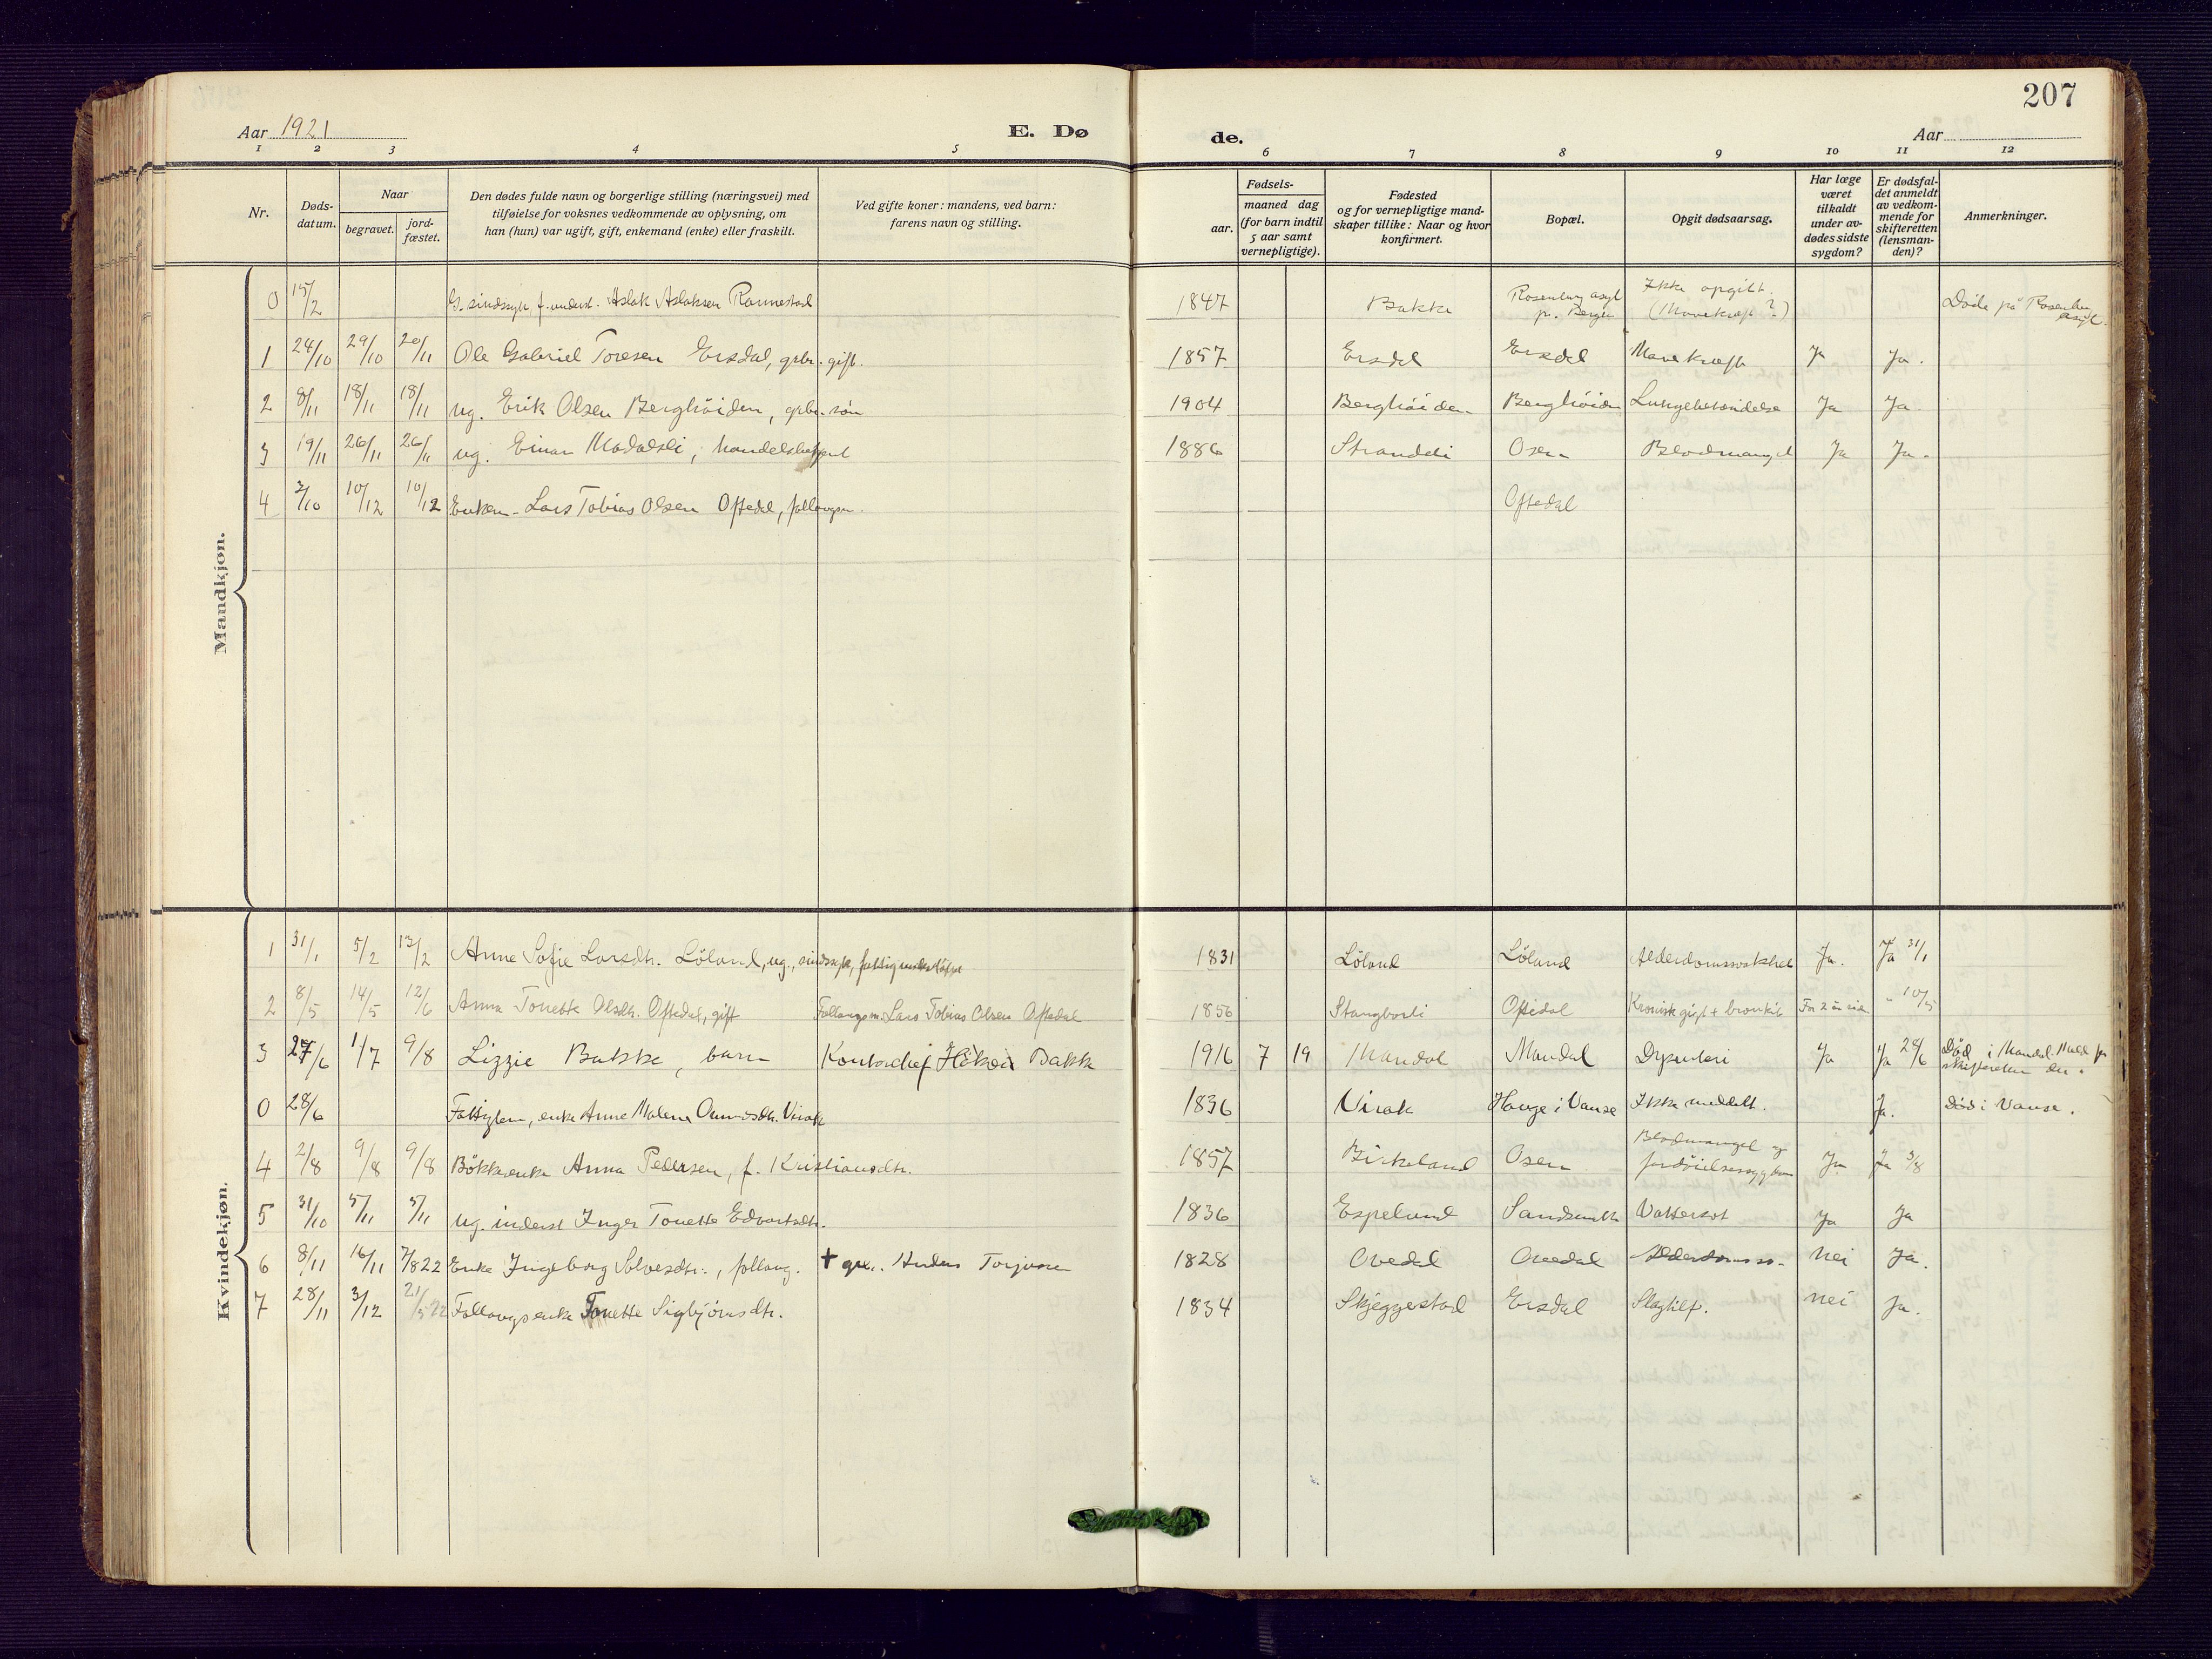 207
Aar 1921
E. Dø
de.
Aar
1 2 3 4 5 6 7 8 9 10 11 12
Nr.
Døds-
datum.
Naar
begravet.
jord-
fæstet.
Den dødes fulde navn og borgerlige stilling (næringsvei) med
tilføielse for voksnes vedkommende av oplysning, om
han (hun) var ugift, gift, enkemand (enke) eller fraskilt.
Ved gifte koner: mandens, ved barn:
farens navn og stilling.
Fødsels-
aar.
maaned dag
(for barn indtil
5 aar samt
vernepligtige).
Fødested
og for vernepligtige mand-
skaper tillike: Naar og hvor
konfirmert.
Bopæl.
Opgit dødsaarsag.
Har læge
været
tilkaldt
under av-
dødes sidste
sygdom?
Er dødsfal-
det anmeldt
av vedkom-
mende for
skifteretten
(lensman-
den)?
Anmerkninger.
Mandkjøn.
0 15/2 G. sindssyk, f. underst. Aslak Aslaksen Rannestad 1847 Bakke Rosenberg asyl pr. Bergen Ikke opgitt. (Mavekræft?) Døde på Rosenbg asyl.
1 24/10 29/10 20/11 Ole Gabriel Toresen Ersdal, grbr. gift. 1857 Ersdal Ersdal Mavekræft Ja Ja.
2 8/11 18/11 18/11 ug. Erik Olsen Berghöiden, grbr. sön 1904 Berghöiden Berghöiden Lungebetændelse Ja Ja.
3 19/11 26/11 26/11 ug. Einar Modalsli, 1886 Strandli Osen Blodmangel Ja Ja.
4 3/10 10/12 10/12 Enkem. Lars Tobias Olsen Oftedal, follaugsm. Oftedal
Kvindekjøn.
1 31/1 5/2 13/2 Anne Sofie Larsdtr. Löland, ug., sindssyk, fattigunderstöttet 1831 Löland Löland Alderdomssvakhet Ja. Ja 31/1
2 8/5 14/5 12/6 Anna Tonette Olsdtr. Oftedal, gift Follaugsm. Lars Tobias Olsen Oftedal 1856 Stangborli Oftedal Kronisk gigt + bronkit For 2 år siden " 10/5
3 27/6 1/7 9/8 Lizzie Bakke, barn Kontorchef Håkon Bakke 1916 7 19 Mandal Mandal Dysenteri Ja Ja 29/6 Död i Mandal. Meld for skifteretten der.
0 28/6 Fattiglem, enke Anne Malene Virak 1836 Virak Hauge i Vanse Ikke meddelt. Ja. Död i Vanse.
4 2/8 9/8 9/8 Bökkerenke Anna Pedersen, f. Kristiansdtr. 1857 Birkeland Osen Blodmangel og fordöielsessygdom Ja Ja 3/8
5 31/10 5/11 5/11 ug. inderst Inger Tonette Edvartsdtr. 1836 Espelund Vattersot Ja Ja
6 8/11 16/11 7/8 22 Enke Ingeborg Solvesdtr., follaug. + Anders Torjusen 1828 Ovedal Ovedal Alderdomssv. Nei Ja.
7 28/11 3/12 21/5 22 Follaugsenke Tonette Sigbjörnsdtr. 1834 Skjeggestad Ersdal Slagtilf. Nei Ja.